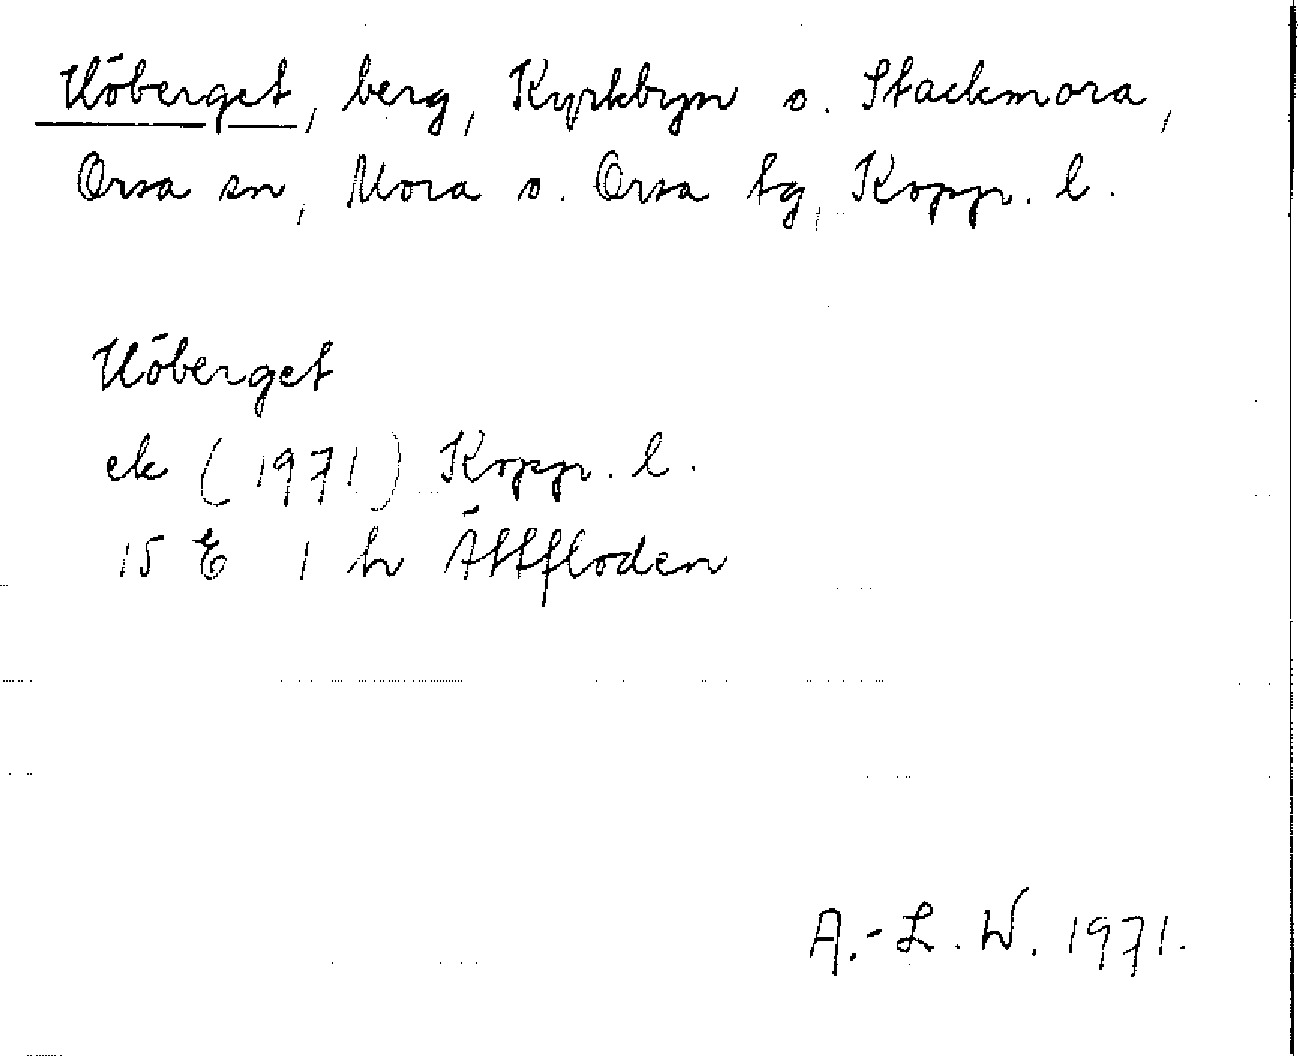 Höberget, berg, Kyrkbyn o. Stackmora,
Orsa sn, Mora o. Orsa tg, Kopp. l.
Höberget
ek (1971) Kopp. l.
15 E 1 h Ättfloden
A.-L. W. 1971.